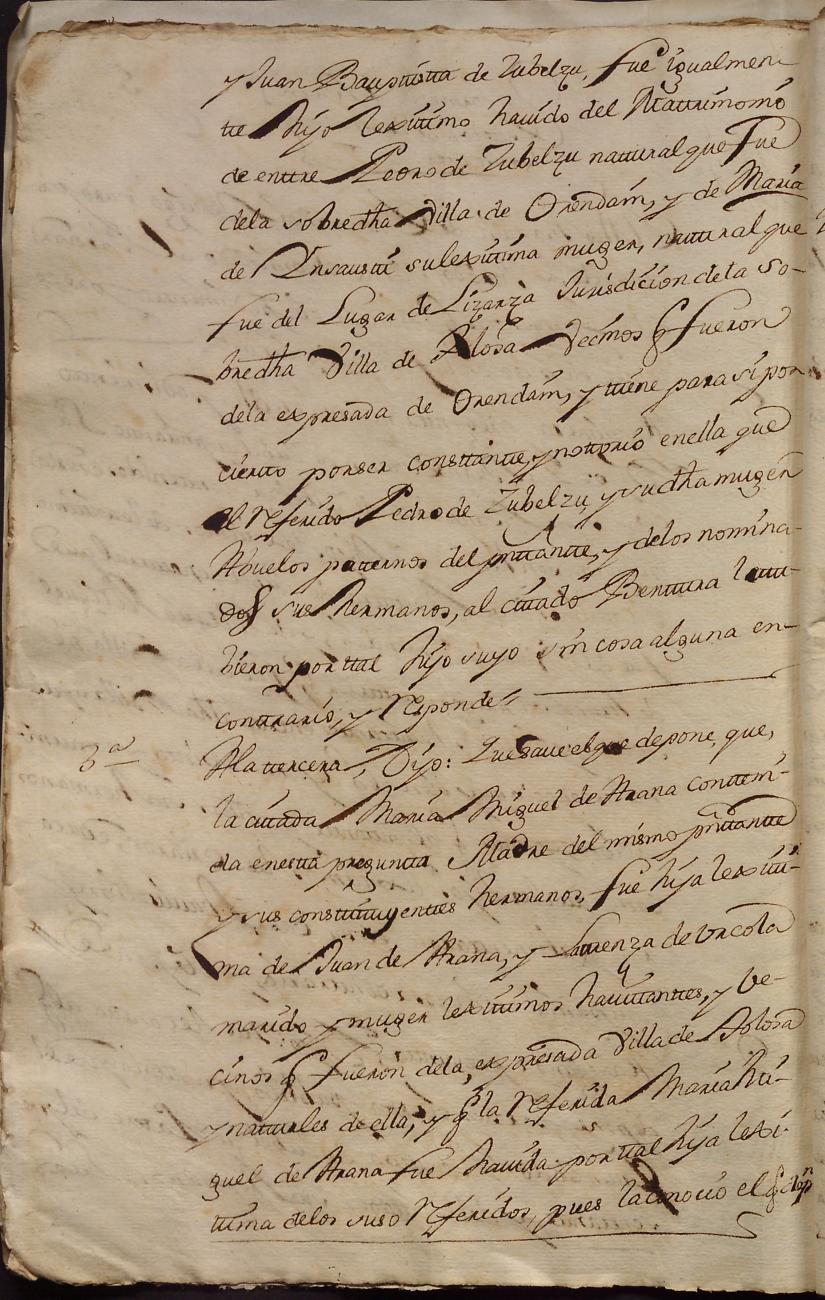 y Juan Bauptista de Zubelzu, fue igualmen-
tte hijo lexittimo havido del Mattrimonio
de enttre Pedro de Zubelzu nattural que fue
dela sobredha Villa de Orendain, y de Maria
de Ynsausti su lexittima muger, nattural que
fue del Lugar de Lizarza Jurisdicion de la So-
bredha Villa de Tolosa Vecinos q fueron
dela expresada de Orendain, y tiene para si por
cierto por ser consttante, y nottorio en ella que
el referido Pedro de Zubelzu y su dha muger
Abuelos patternos del pnttantte, y delos nomina-
dos sus hermanos, al cittado Benttura lo ttu-
bieron por ttal hijo suyo sin cosa alguna en
conttrario, y responde
3a Ala ttercera, Dijo: Que save el que depone, que,
la cittada Maria Miguel de Arana conttem-
da en estta preguntta Madre del mismo pnttantte
y sus consttittuyenttes hermanos, fue hija lexitti-
ma de Juan de Arana, y Laurenza de Urcola
marido y muger lexittimos havittanttes, y Ve-
cinos q fueron dela expresada Villa de Tolosa
y natturales de ella, y q la referida Maria Mi-
guel de Arana fue havida por ttal hija lexi-
ttima delos suso referidos, pues la conocio el q